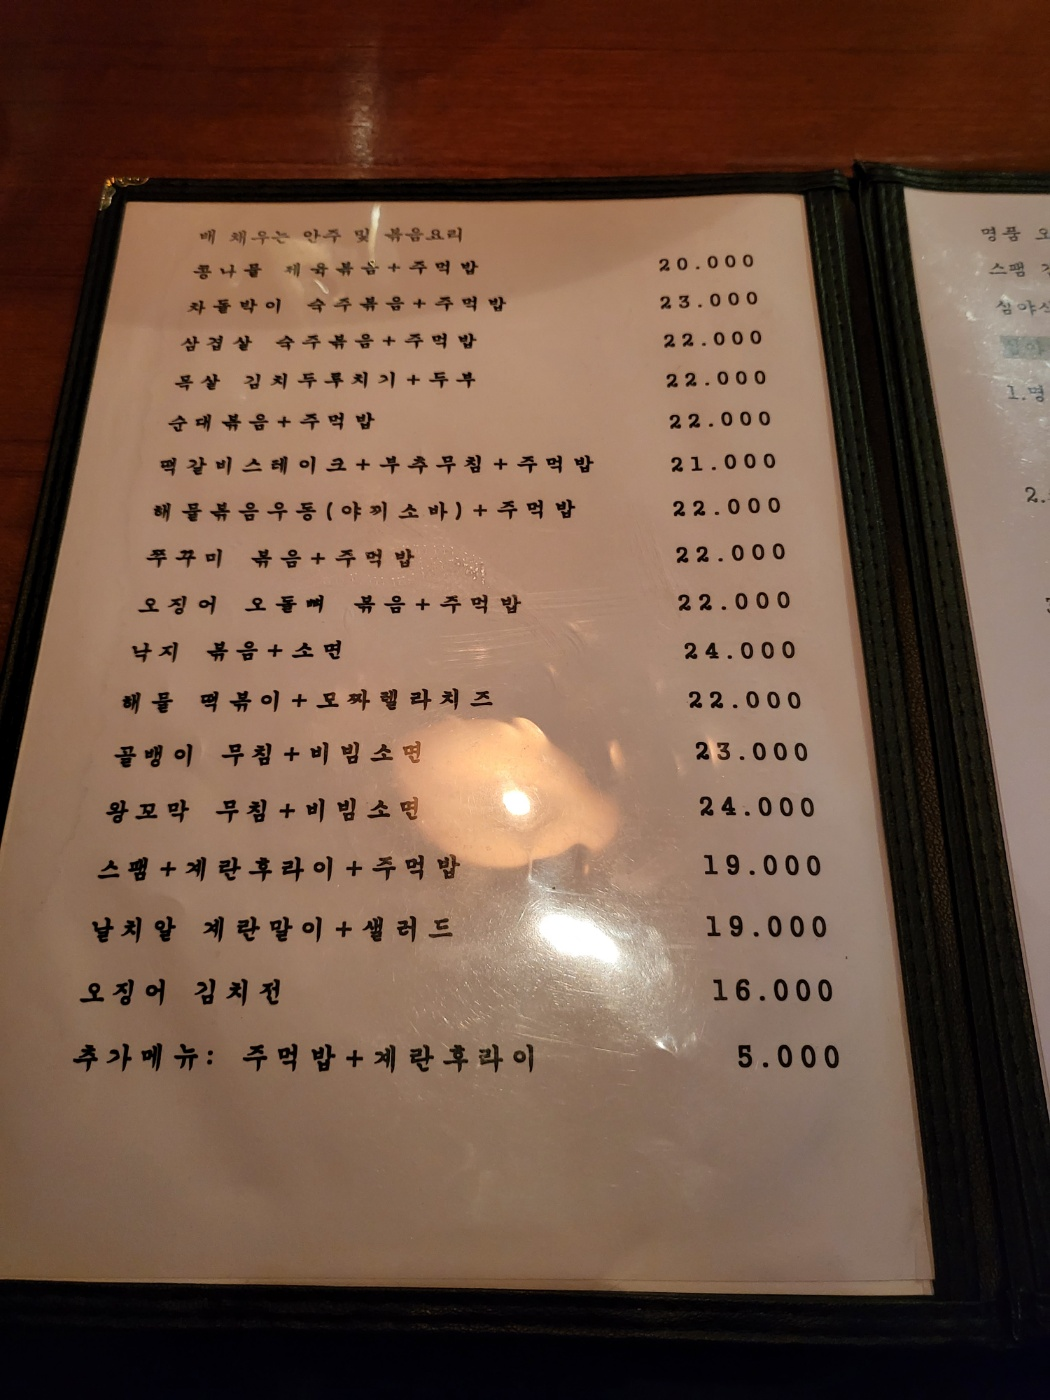 배 채우는 안주 및 볶음요리
콩나물 제육볶음+주먹밥 20.000
차돌박이 숙주볶음+주먹밥 23.000
삼겹살 숙주볶음+주먹밥 22.000
목살 김치두루치기+두부 22.000
순대볶음+주먹밥 22.000
떡갈비스테이크+부추무침+주먹밥 21.000
해물볶음우동(야끼소바)+주먹밥 22.000
쭈꾸미 볶음+주먹밥 22.000
오징어 오돌뼈 볶음+주먹밥 22.000
낙지 볶음+소면 24.000
해물 떡볶이+모짜렐라치즈 22.000
골뱅이 무침+비빔소면 23.000
왕꼬막 무침+비빔소면 24.000
스팸+계란후라이+주먹밥 19.000
날치알 계란말이+샐러드 19.000
오징어 김치전 16.000
추가메뉴: 주먹밥+계란후라이 5.000
명품
스팸
1.명
2.